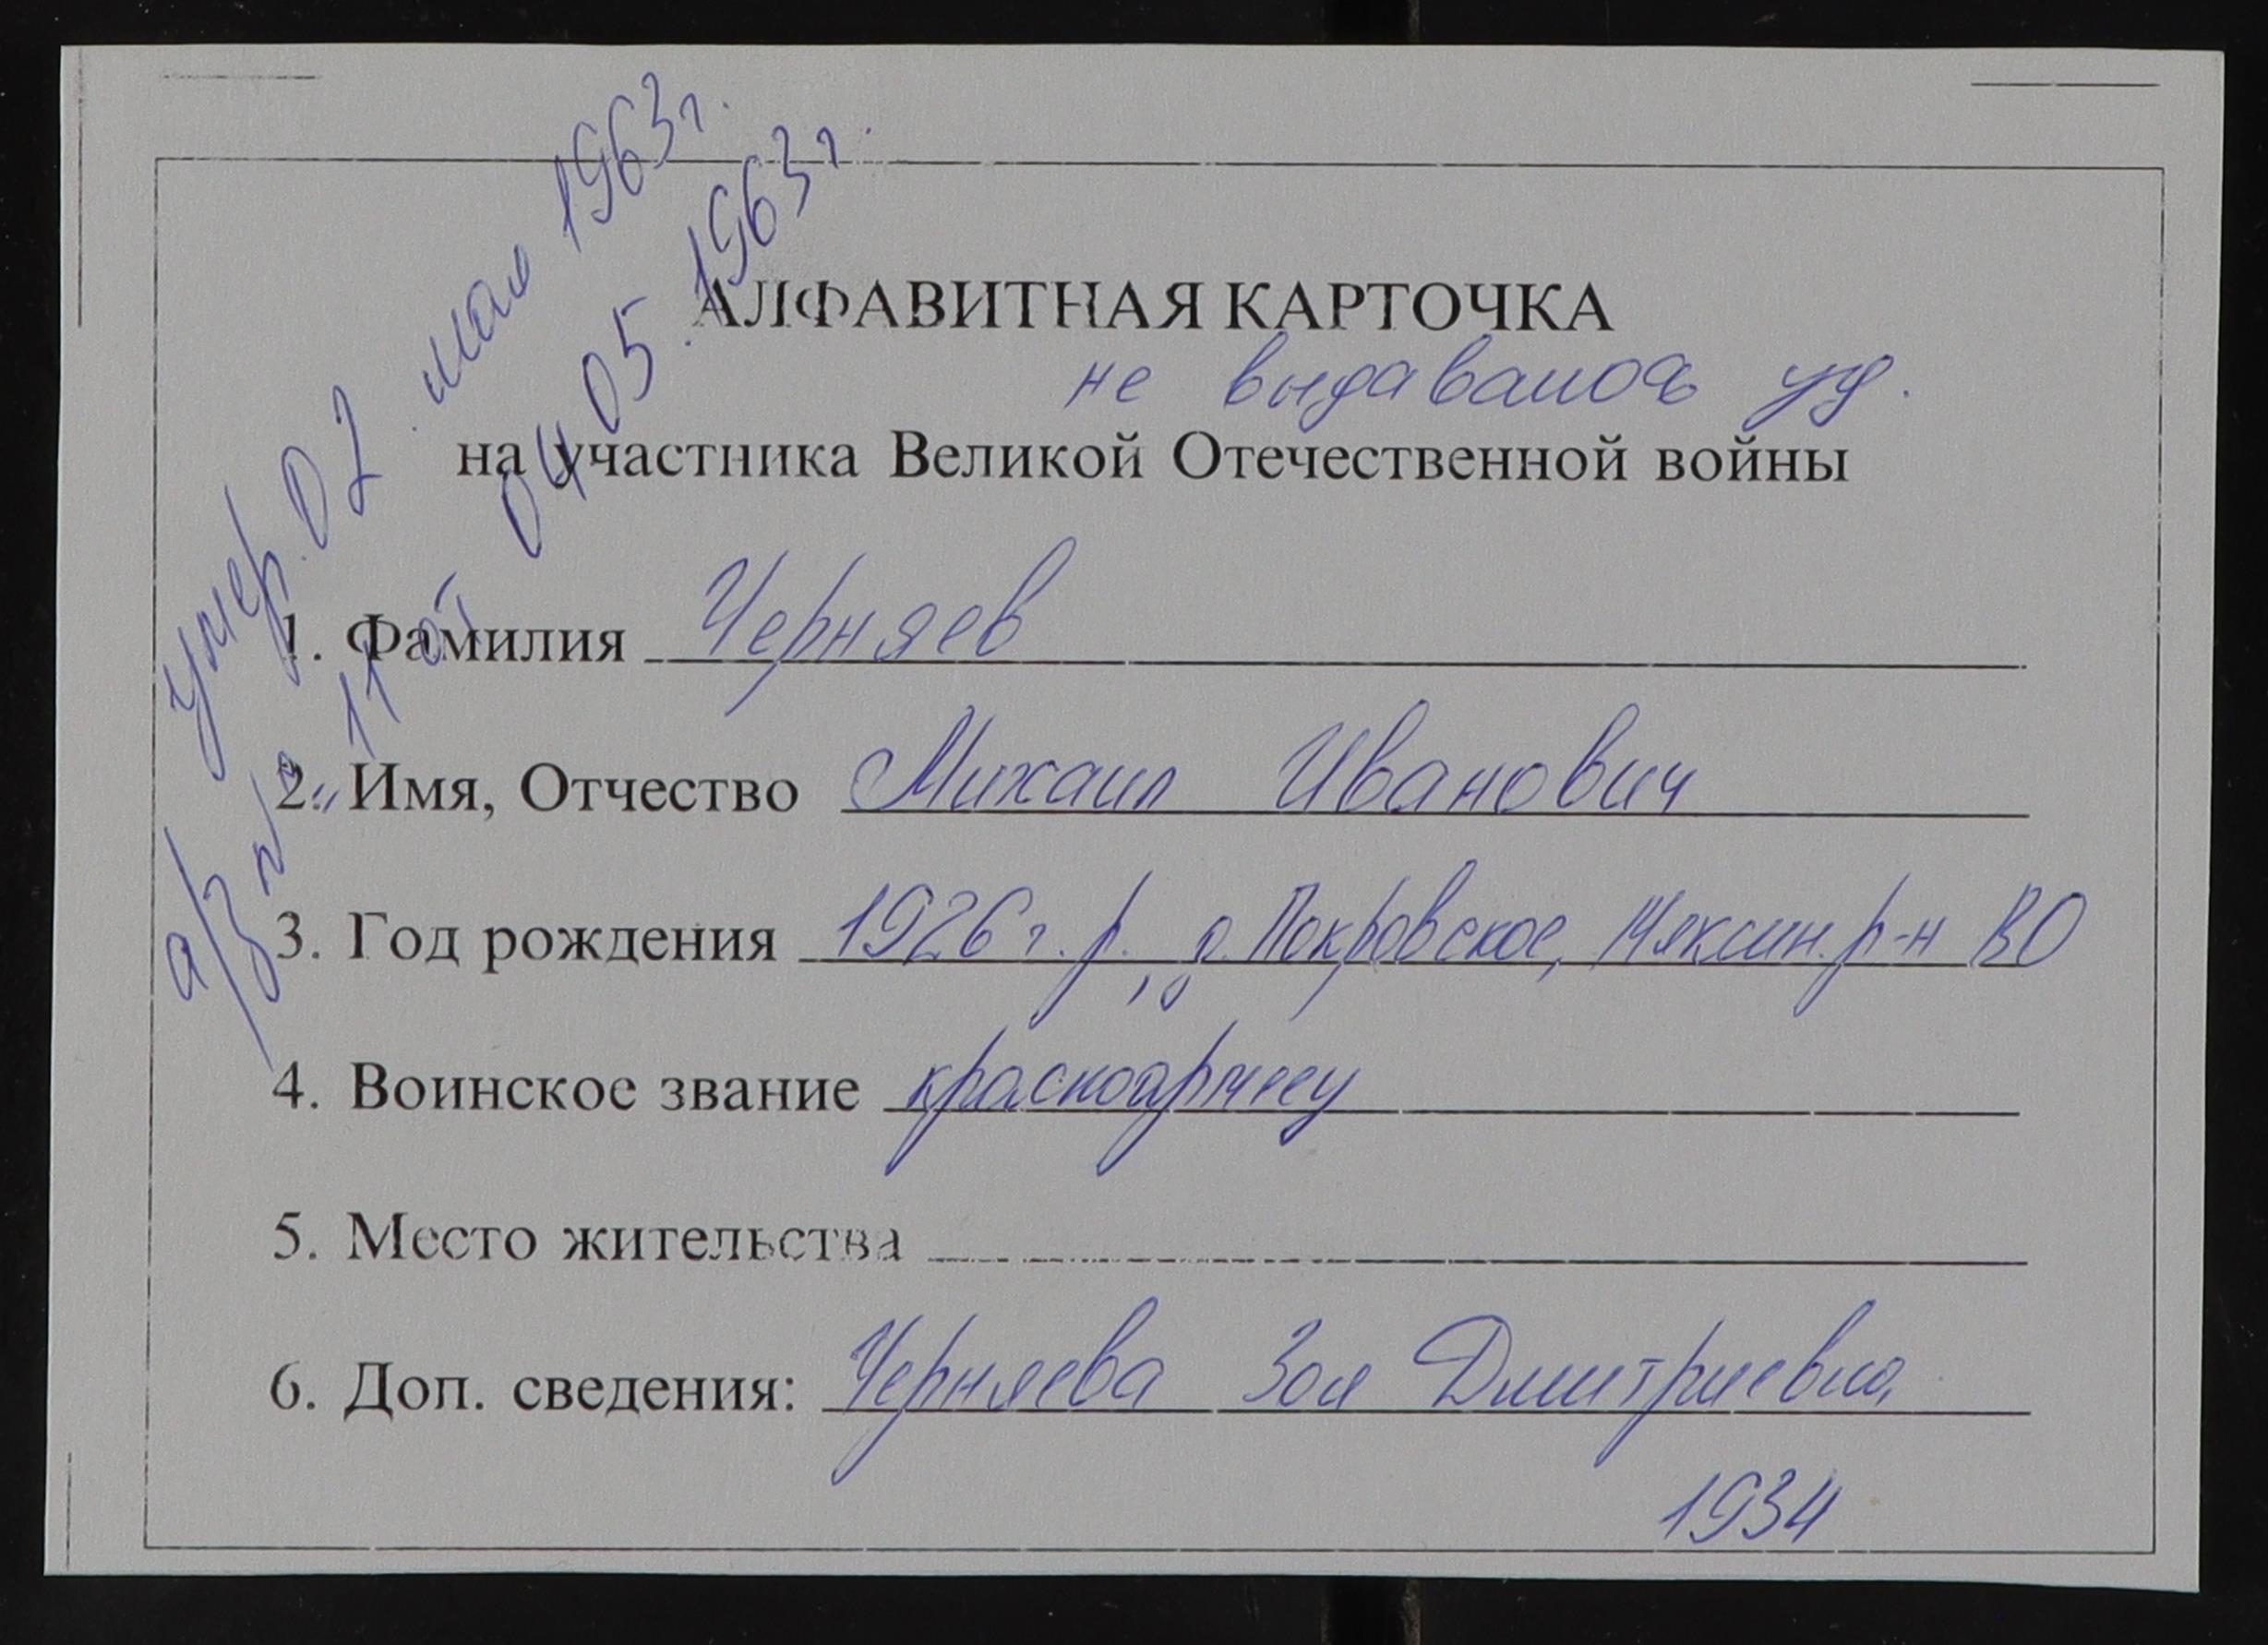 умер 02 мая 1963г.
а/з № 11 от 04.05.1963г.
АЛФАВИТНАЯ КАРТОЧКА
не выдавалось уд.
на участника Великой Отечественной войны
1. Фамилия Черняев
2. Имя, Отчество Михаил Иванович
3. Год рождения 1926г.р., д. Покровское, Мяксин. р-н ВО
4. Воинское звание красноармеец
5. Место жительства
6. Доп. сведения: Черняева Зоя Дмитриевна
1934